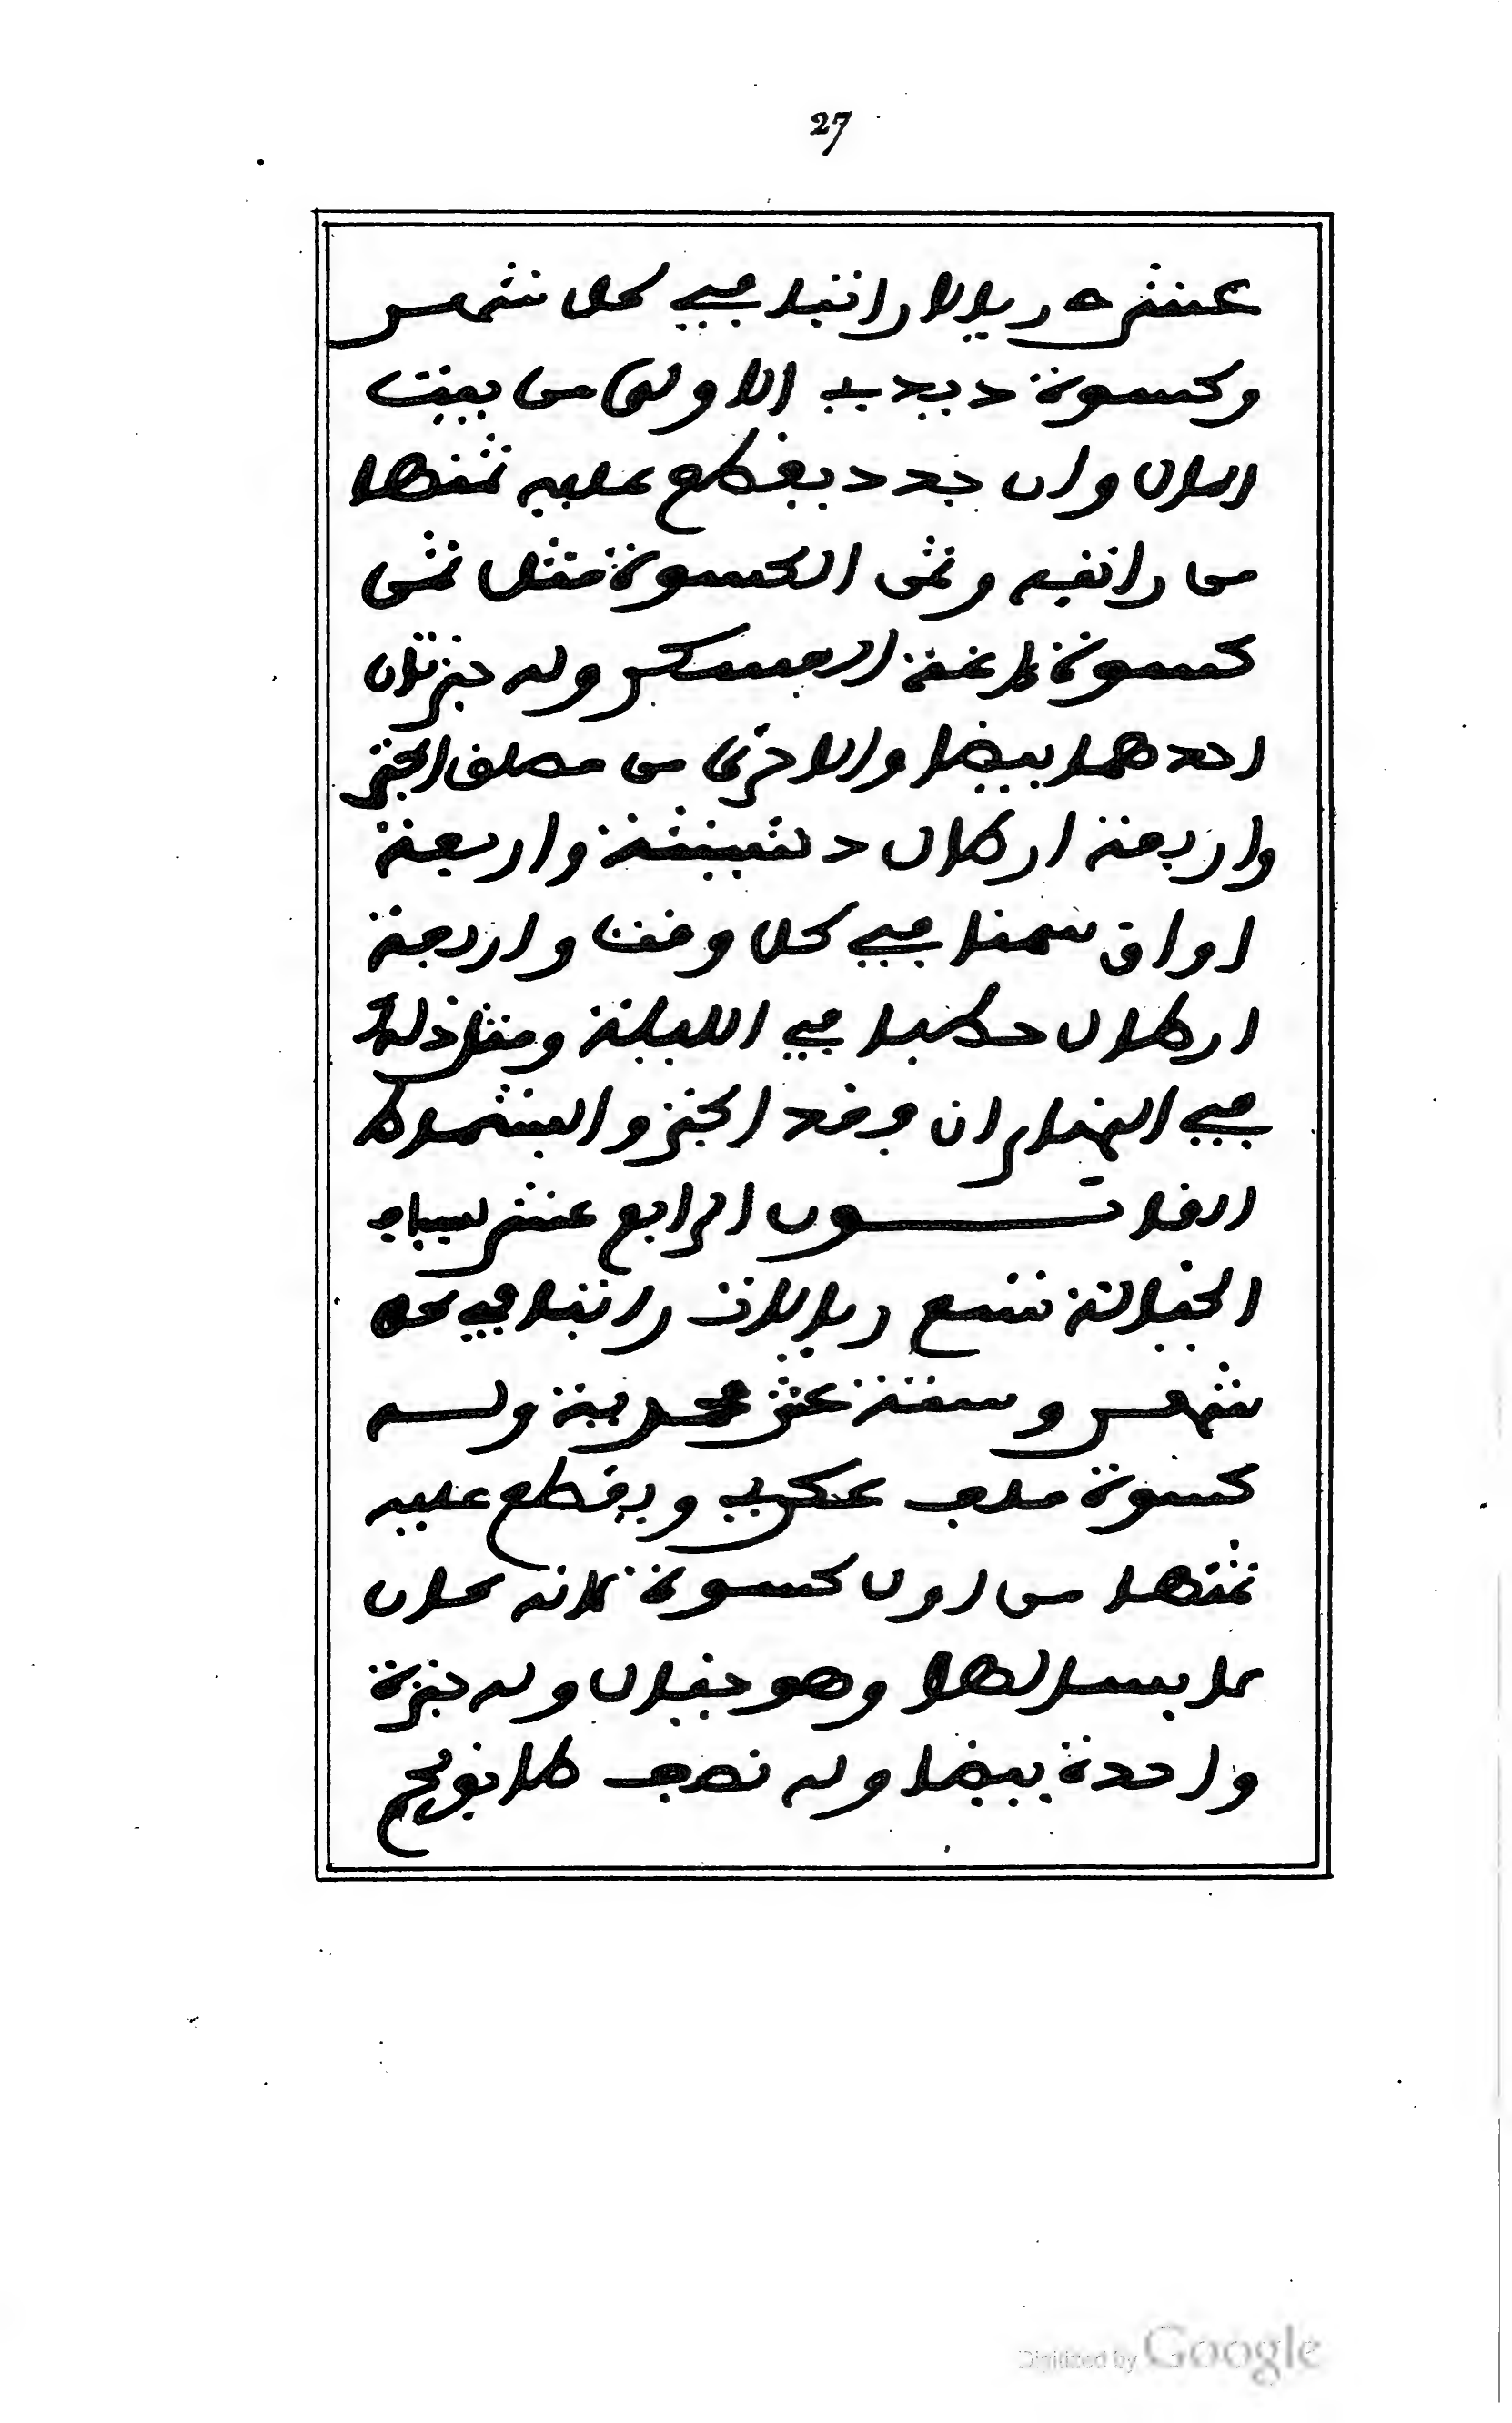 27
عشره ريالا راتبا في كل شهر
وكسوة ديدي الاولى من بيت
المال وان جدد يقطع عليه ثمنها
من راتبه وثمن الكسوة مثل ثمن
كسوة العسكر وله خبزتان
احدهما بيضا والاخرى من مطلق الخبز
واربعة ارطال دشيشة واربعة
اواق سمنا في كل وقت واربعة
ارطال حطبا في الليلة ومثل ذلك
في النهار ان وقد الخبز والبشماط
القانون الرابع عشر لسياف
الخيالة تسع ريالات راتبا في كل
شهر وستة عشر محمدية وله
كسوة ملف عكري ويقطع عليه
ثمنها من اول كسوة لانه كان
لابسا لها وهو خيال وله خبزة
واحدة بيضا وله نصف
Digitized by Google